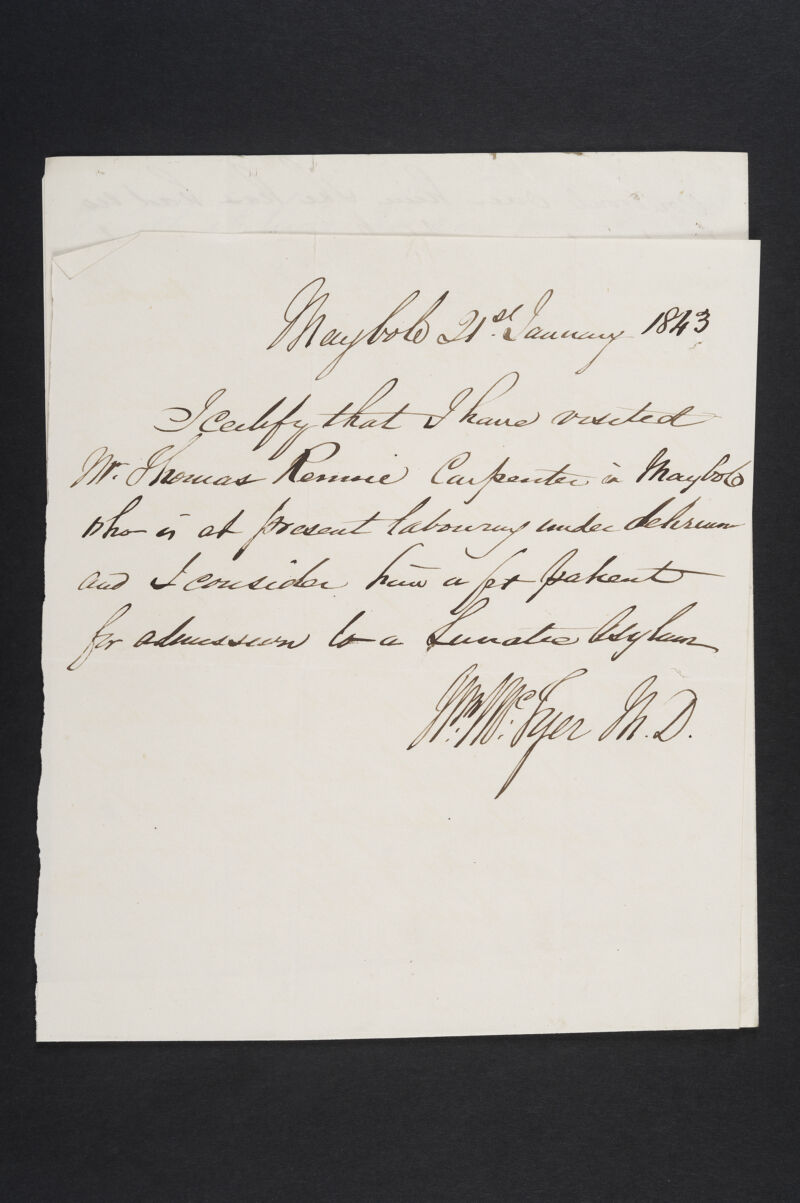 Maybole 21st January 1843
I certify that I have visited
Mr. Thomas Rennie Carpenter in Maybole
who is at present labouring under delirium
and I consider him a fit patient
for admission to a Lunatic Asylum
Wm. Mc. Fyer M.D.